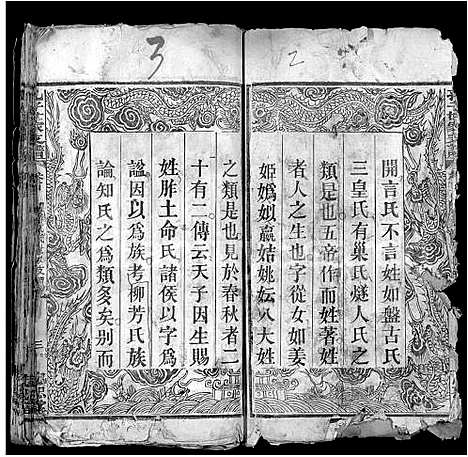 開言氏不言姓如盤古氏
三皇氏有巢氏燧人氏之
類是也五帝作而姓著姓
者人之生也字從女如姜
姬嬀姒嬴姞姚妘八大姓
之類是也見於春秋者二
十有二傳云天子因生賜
姓胙土命氏諸侯以字爲
謚因以爲族考柳芳氏族
論知氏之爲類多矣別而